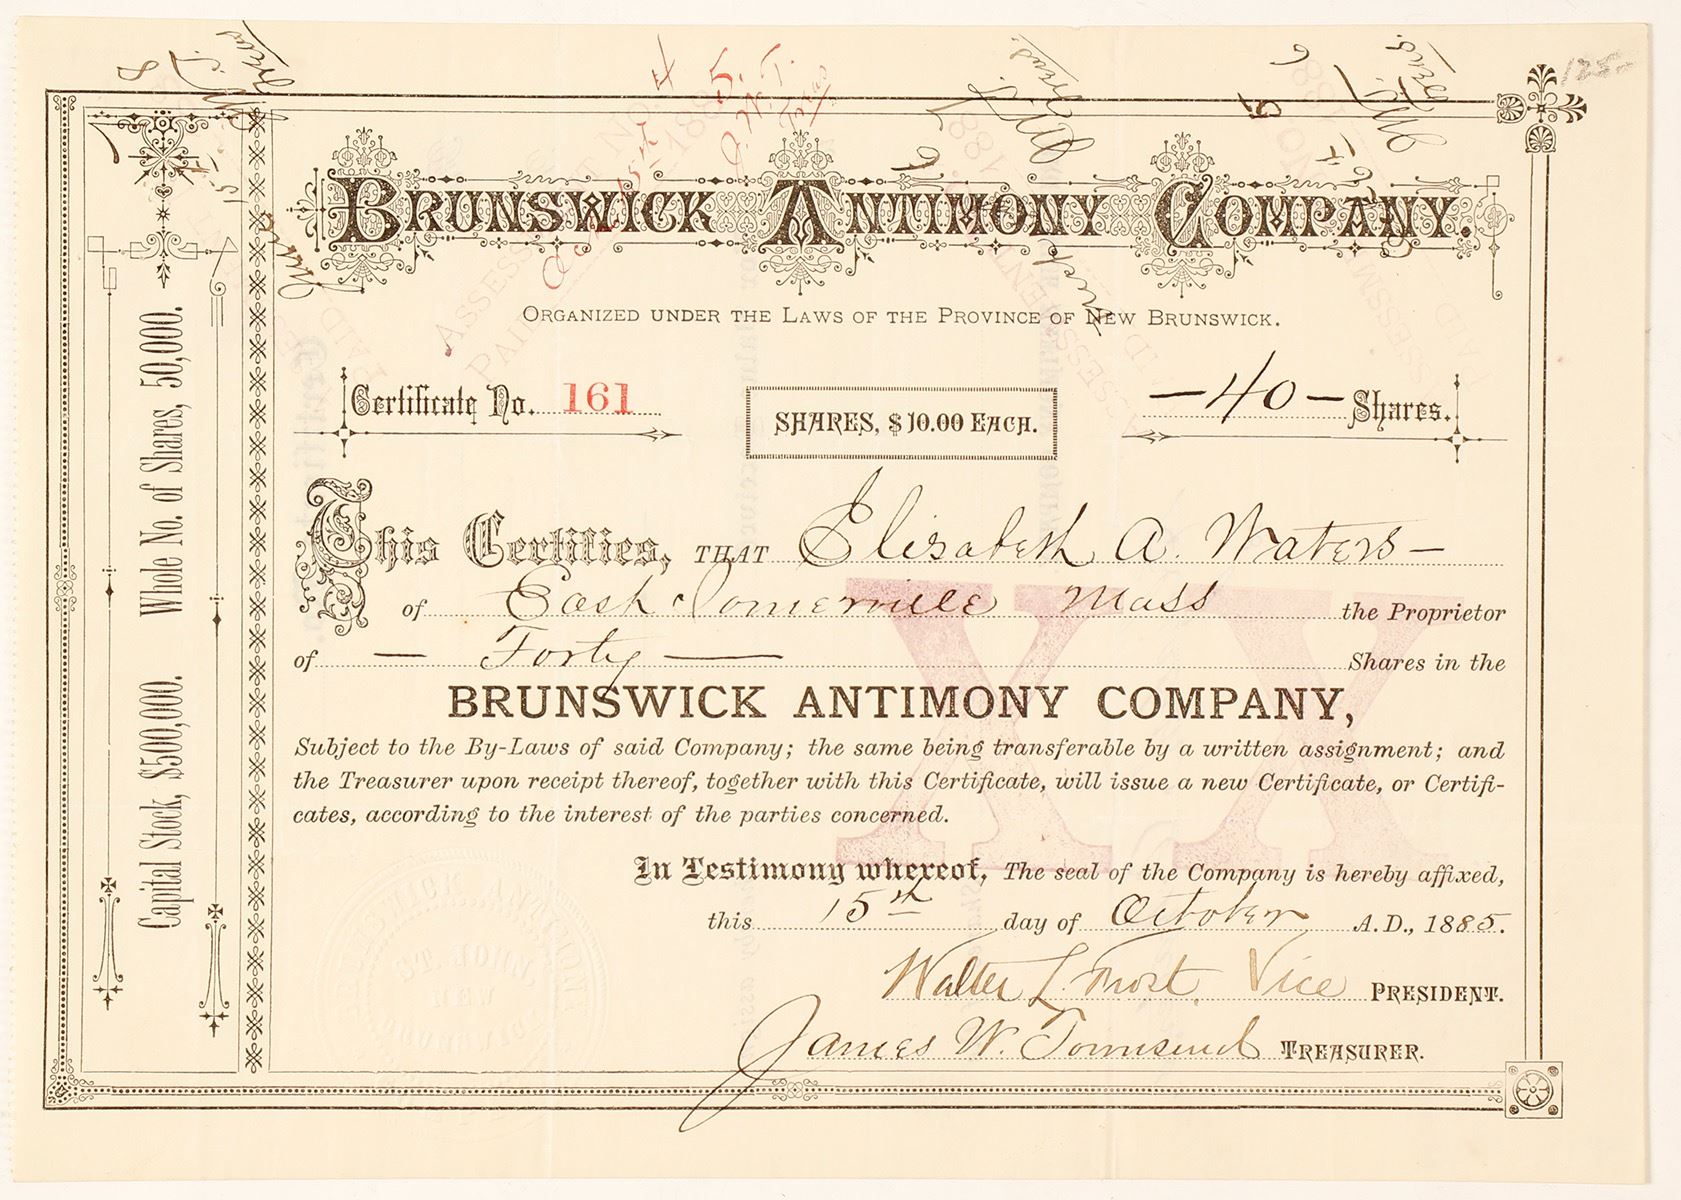 125-
BRUNSWICK ANTIMONY COMPANY.
ORGANIZED UNDER THE LAWS OF THE PROVINCE OF NEW BRUNSWICK.
Certificate No. 161
SHARES, $10.00 EACH.
-40- Shares.
This Certifies, THAT Elisabeth A. Waters-
of East Somerville Mass the Proprietor
of - Forty - Shares in the
BRUNSWICK ANTIMONY COMPANY,
Subject to the By-Laws of said Company; the same being transferable by a written assignment; and
the Treasurer upon receipt thereof, together with this Certificate, will issue a new Certificate, or Certifi-
cates, according to the interest of the parties concerned.
In Testimony whereof, The seal of the Company is hereby affixed,
this 15th day of October A.D., 1885.
Walter L. Frost. Vice PRESIDENT.
James W. Townsend TREASURER.
Capital Stock, $500,000. Whole No. of Shares, 50,000.
XX
ST. JOHN,
NEW